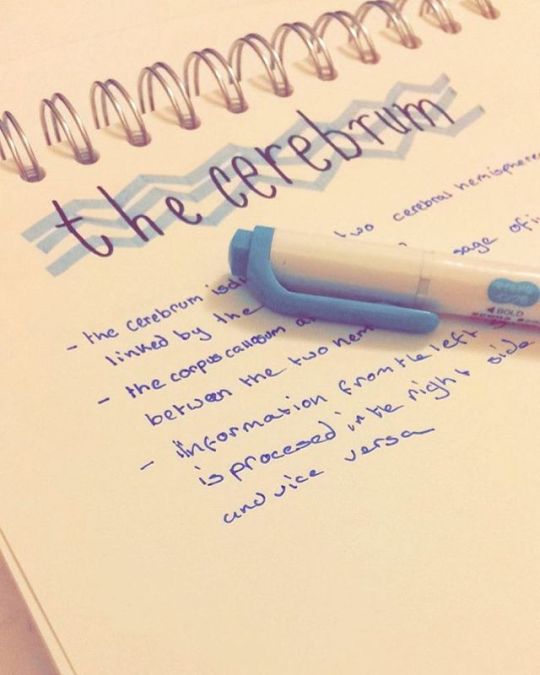 the cerebrum
- the cerebrum is two cerebral hemisphere
linked by the sage of
- the corpus callosum
between the two hem
- information from the left
is procesed in the right side
and vice versa
BOLD